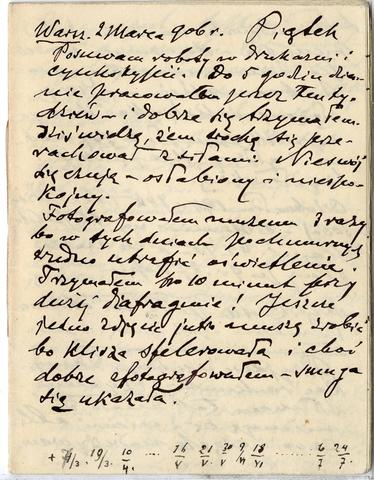 Warsz. 2 Marca 906 r. Piątek
Posuwam roboty w drukarni i
cynkotypii. Do 5 godzin dzien-
nie pracowałem przez ten ty-
dzień – i dobrze się trzymałem.
Dziś widzę, żem trochę się prze-
rachował z siłami. Nieswój
się czuję – osłabiony i niespo-
kojny.
Fotografowałem muzeum 3 razy
bo w tych dniach pochmurnych
trudno utrafić oświetlenie.
Trzymałem po 10 minut przy
dużej diafragmie! Jeszcze
jedno zdjęcie jutro muszę zrobić
bo klisza szlerowała i choć
dobrze sfotografowałem – smuga
się ukazała.
+ 4/3. 19/3. 10/4. ..... 16/V 21/V 20/V 9/VI 18/VI ..... 6/7 24/7